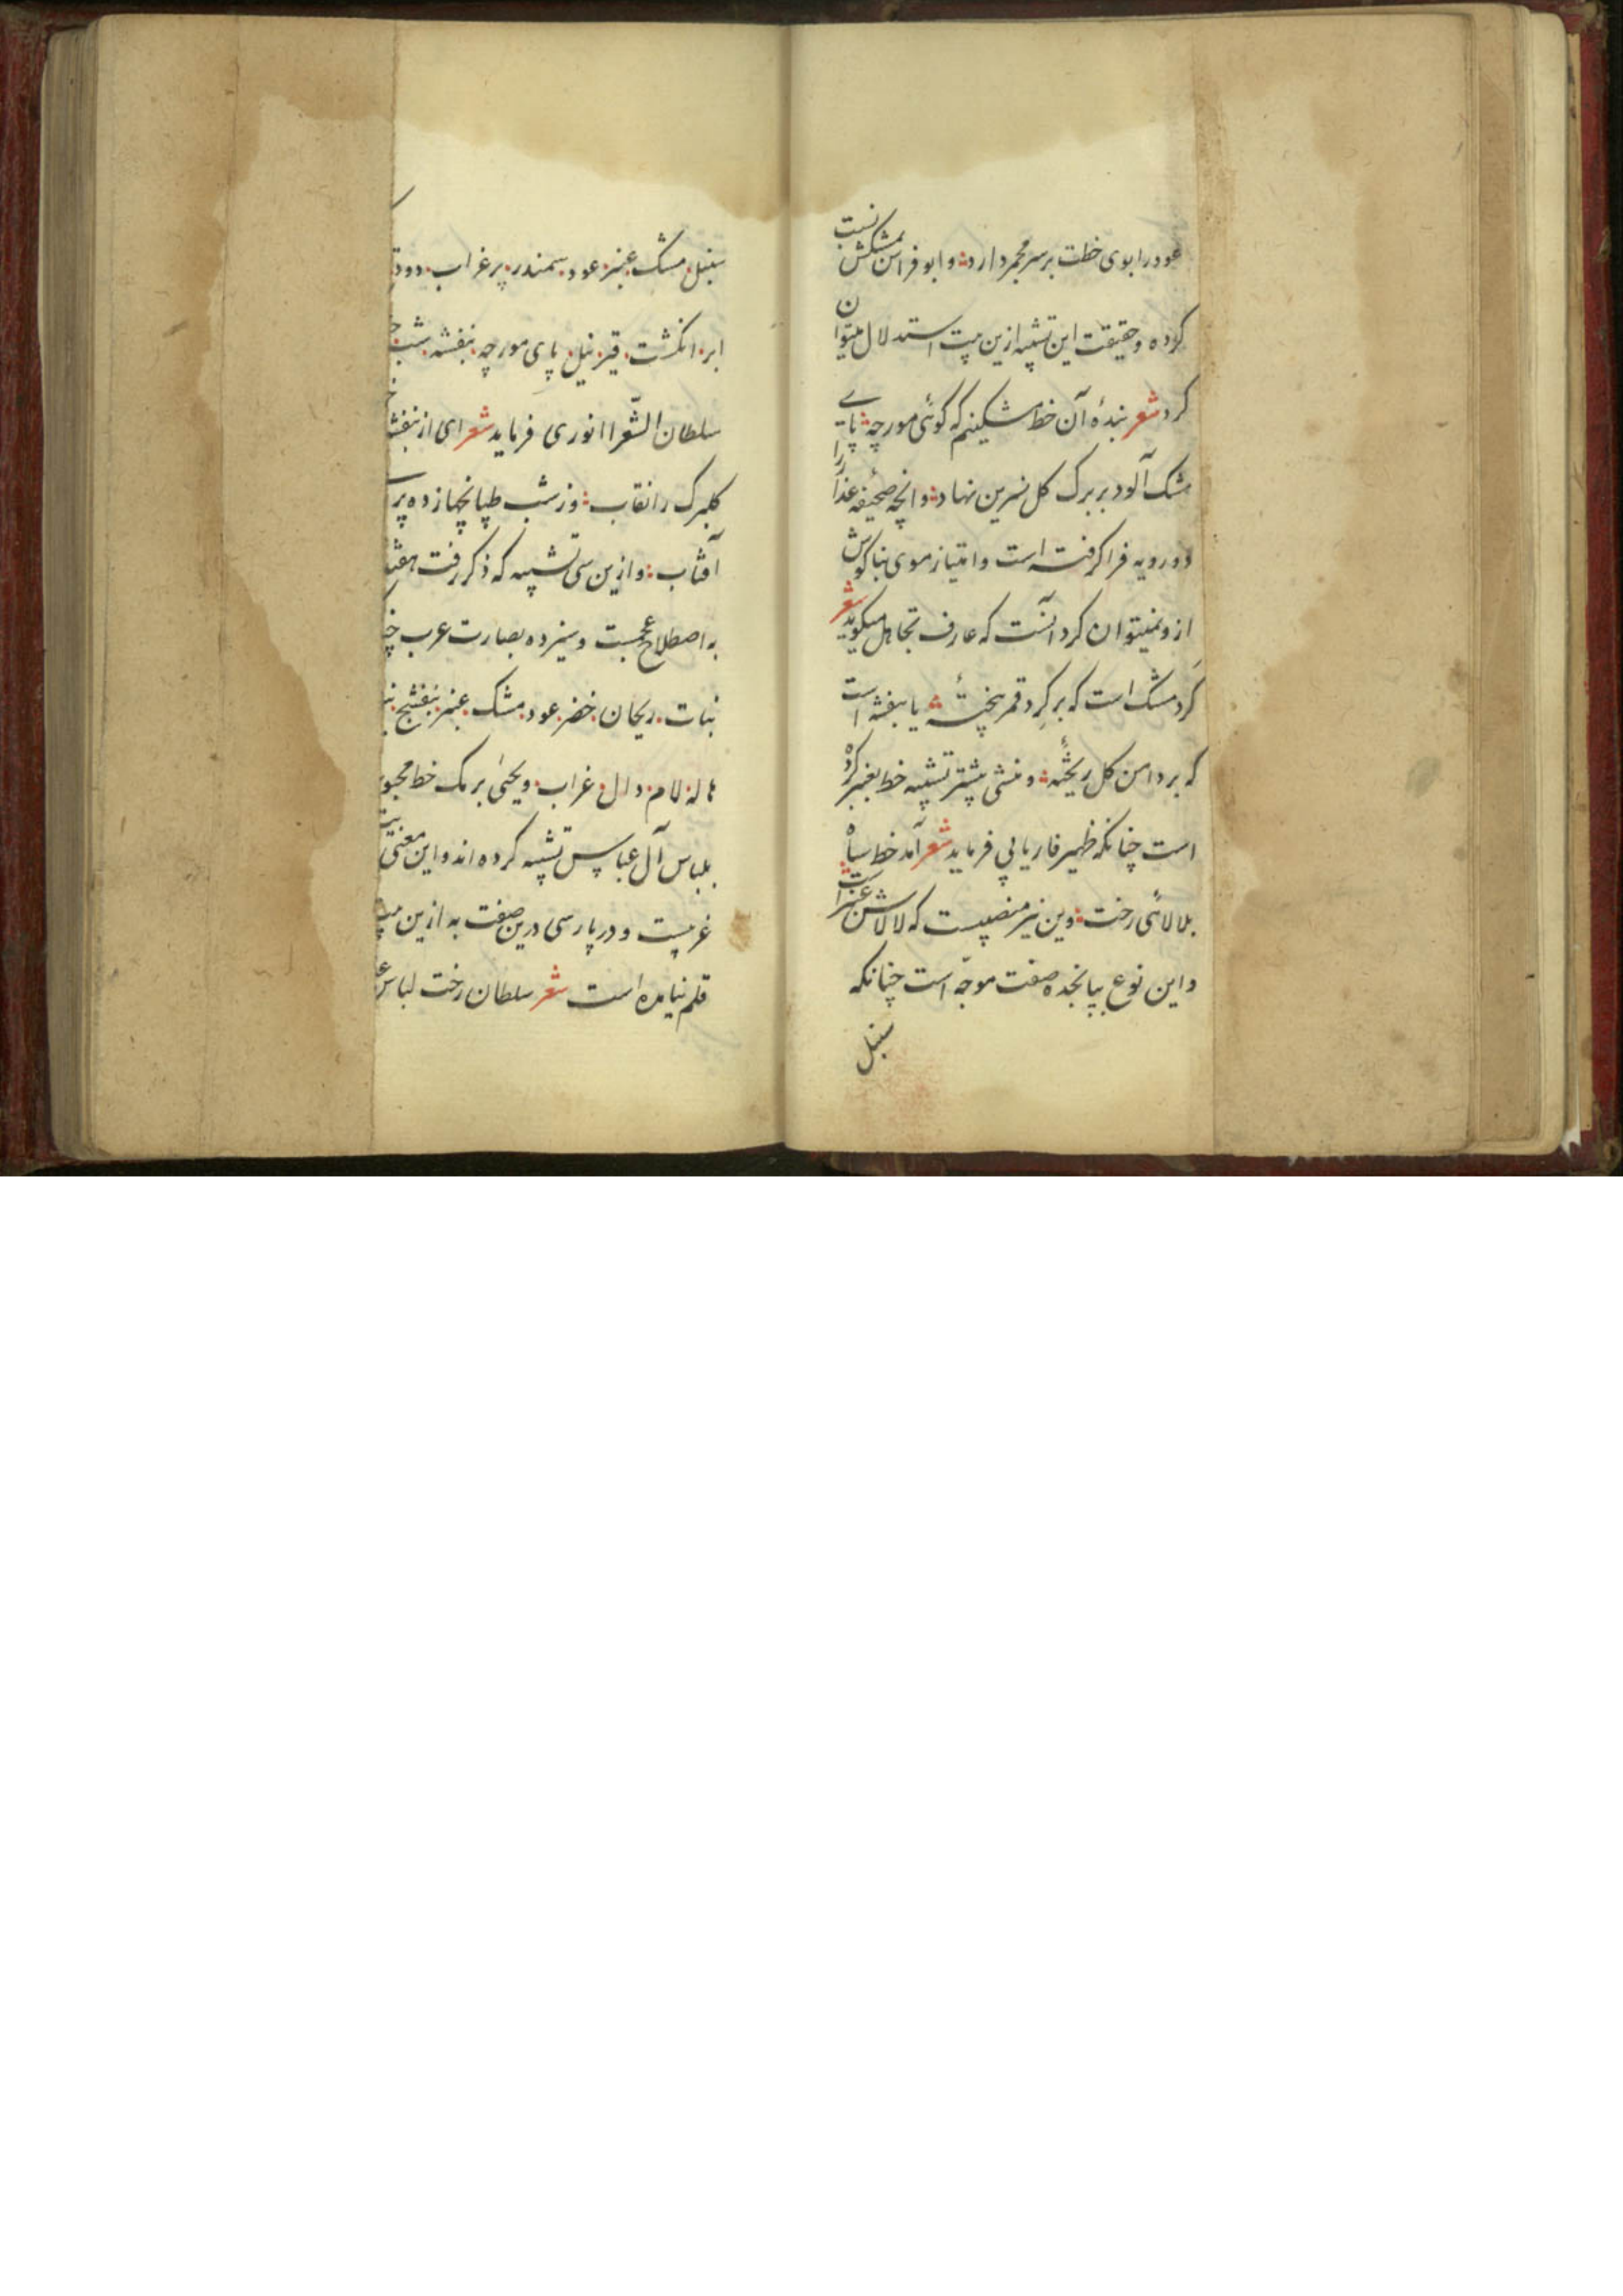 عود را بوی خطت بر سر مجمر دارد ؞ و ابو فراس بمشکش نسبت
کرده و حقیقت این تشبیه ازین بیت استدلال میتوان
کرد شعر بندهٔ آن خط مشکینم که گوئی مورچه ؞ پای
مشک آلود بر برک کل نسرین نهاد ؞ و انچه صحیفه عذار را
دو رویه فرا کرفته است و امتیاز موی بناکوش
ازو نمیتوان کرد آنست که عارف تجاهل میکوید شعر
کَرد مشک است که بر کِرد قمر بیختهٔ ؞ یا بنفشه است
که بر دامن کل ریختهٔ ؞ و منشی بیشتر تشبیه خط بعنبر کرده
است چنانکه ظهیر فاریابی فرماید شعر آمد خط سیاه
بلالائی رخت ؞ وین نیز منصبیست که لالاش عنبر است
و این نوع بپانجده صفت موجّه است چنانکه
سنبل
سنبل . مشک . عنبر . عود . سمندر . پر غراب . دود
ابر . انکشت . قیر . نیل . پای مورچه . بنفشه . شب
سلطان الشّعرا انوری فرماید شعر ای از بنفشه
کلبرک را نقاب ؞ وز شب طپانچها زده بر
آفتاب ؞ و ازین سی تشبیه که ذکر رفت هفده
به اصطلاح عجمست و سیزده بعبارت عرب
نبات . ریحان . خضر . عود . مشک . عنبر . بنفشج
هاله . لام . دال . غراب . و یحیی برمک خط محبوب
بلباس آل عباس تشبیه کرده اند و این معنی بیت
غریبست و در پارسی درین صفت به ازین بیت
قلم نیامده است شعر سلطان رخت لباس